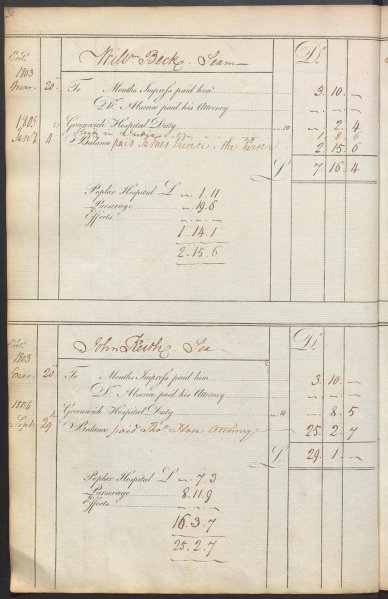 Dr
Entd Willm Beck. Seam
1803
Mar. 20 To Months Impress paid him 3. 10. —
Do. Absence paid his Attorney — — —
1805 Greenwich Hospital Duty 10 — 2. 4
in India 8. 6
Jany 4 Balance paid James the Purser 2. 15. 6
£ 7. 16. 4
Poplar Hospital £ — 1. 11
Purserage — 19. 6
Effects
1. 14. 1
2. 15. 6
Dr
Entd John Keith. Sea
1803
Mar. 20 To Months Impress paid him 3. 10. —
Do. Absence paid his Attorney — — —
1804 Greenwich Hospital Duty 10 — 8. 5
Sept. 29 Balance paid Thos. Hose Attorney 25. 2. 7
£ 29. 1. —
Poplar Hospital £ — 7. 3
Purserage 8. 11. 9
Effects — — —
16. 3. 7
25. 2. 7